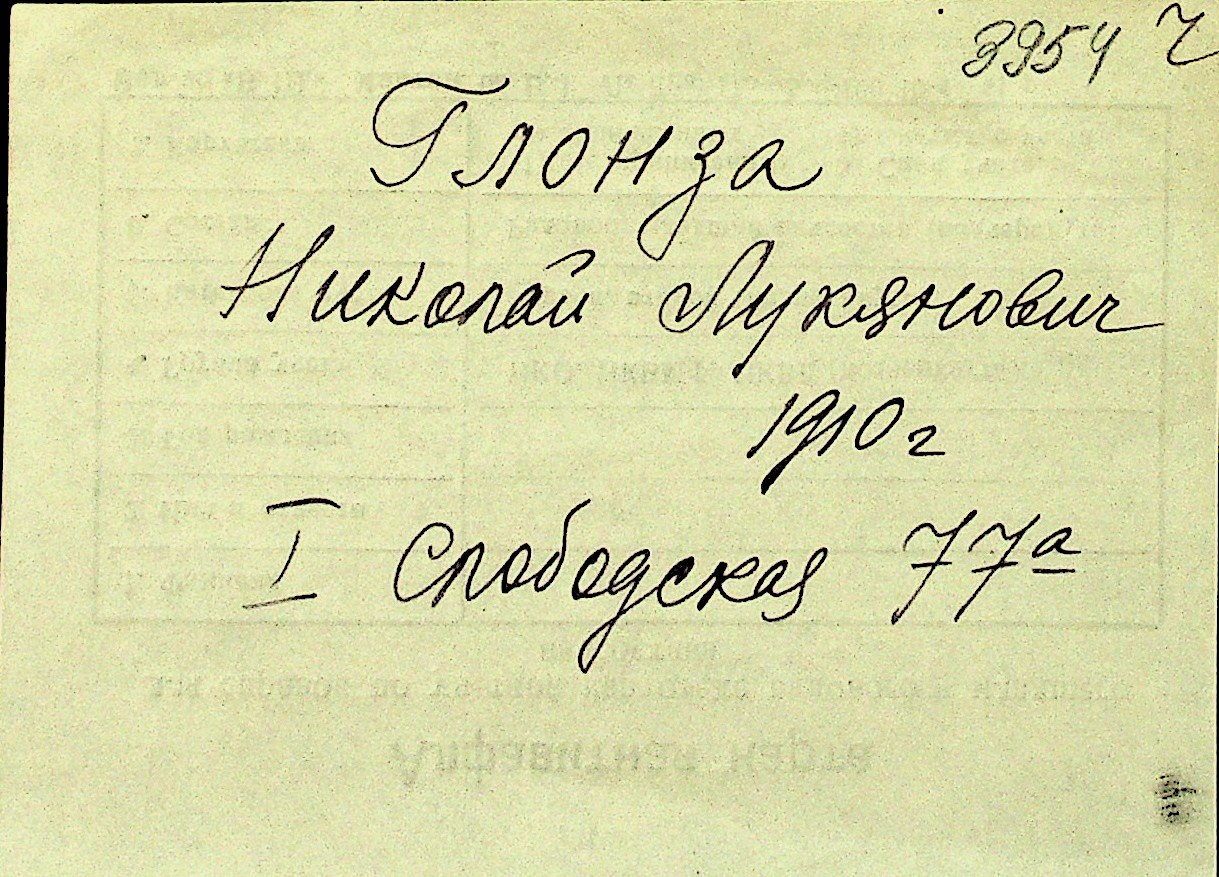 3954 ч
Глонза
Николай Лукянович
1910 г
I Слободская 77а